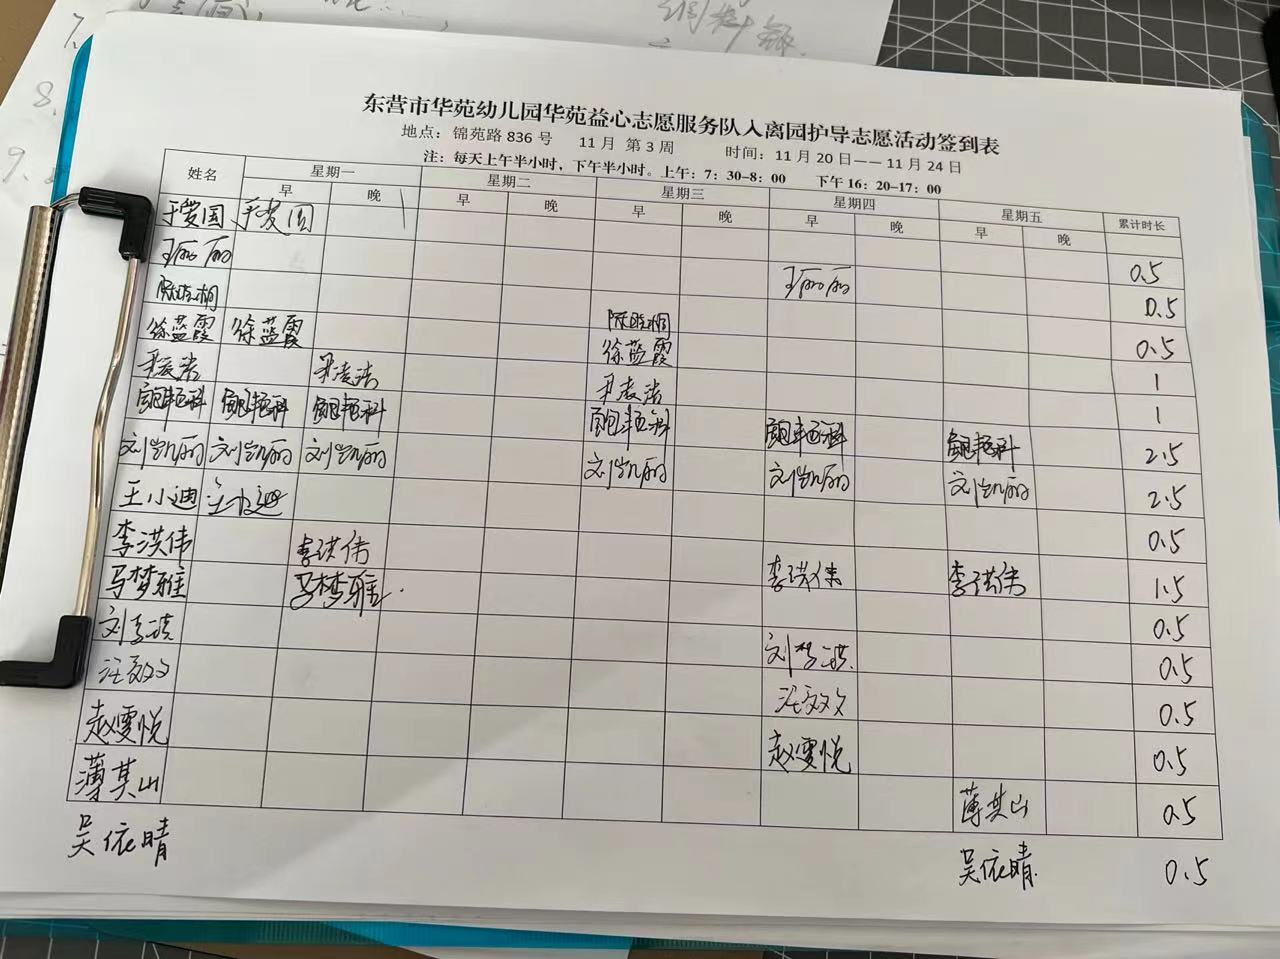 7.
8.
9.
东营市华苑幼儿园华苑益心志愿服务队入离园护导志愿活动签到表
地点：锦苑路 836 号 11 月 第 3 周 时间：11 月 20 日—— 11 月 24 日
注：每天上午半小时，下午半小时。上午：7：30-8：00 下午 16：20-17：00
姓名 星期一 星期二 星期三 星期四 星期五 累计时长
早 晚 早 晚 早 晚 早 晚 早 晚
于爱国 于爱国 0.5
王丽丽 王丽丽 0.5
陈晓桐 陈晓桐 0.5
徐蓝霞 徐蓝霞 徐蓝霞 1
1
2.5
刘凯丽 刘凯丽 刘凯丽 刘凯丽 刘凯丽 刘凯丽 2.5
王小迪 王小迪 0.5
李洪伟 李洪伟 李洪伟 李洪伟 1.5
马梦雅 马梦雅 0.5
0.5
汪文 汪文 0.5
赵雯悦 赵雯悦 0.5
薄其山 薄其山 0.5
吴依晴 吴依晴 0.5